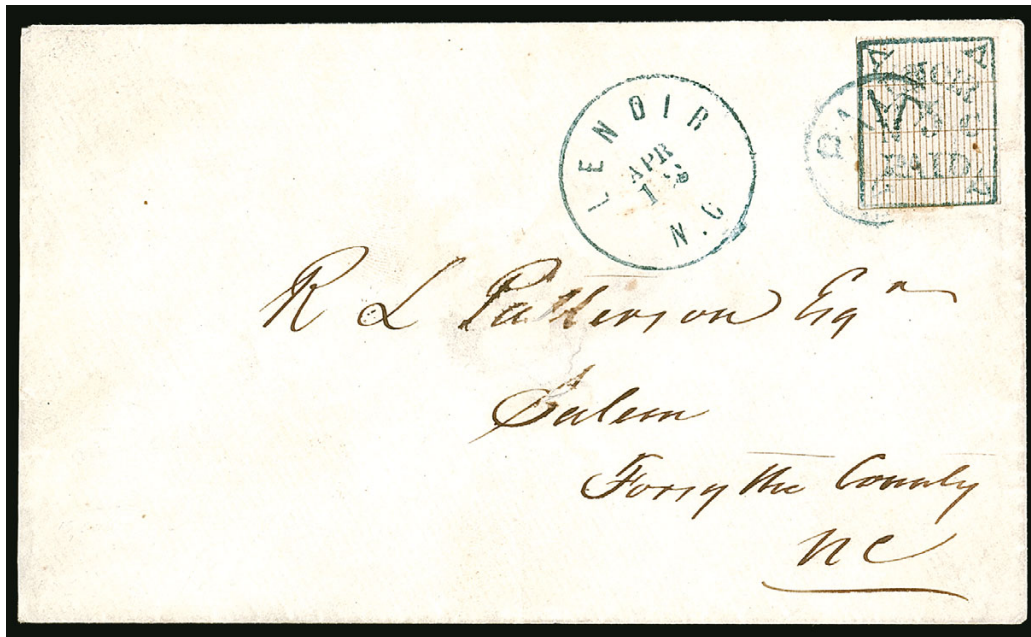 LENOIR
APR
N.C
PAID
PAID
R L Patterson Esqr
Salem
Forsythe County
NC